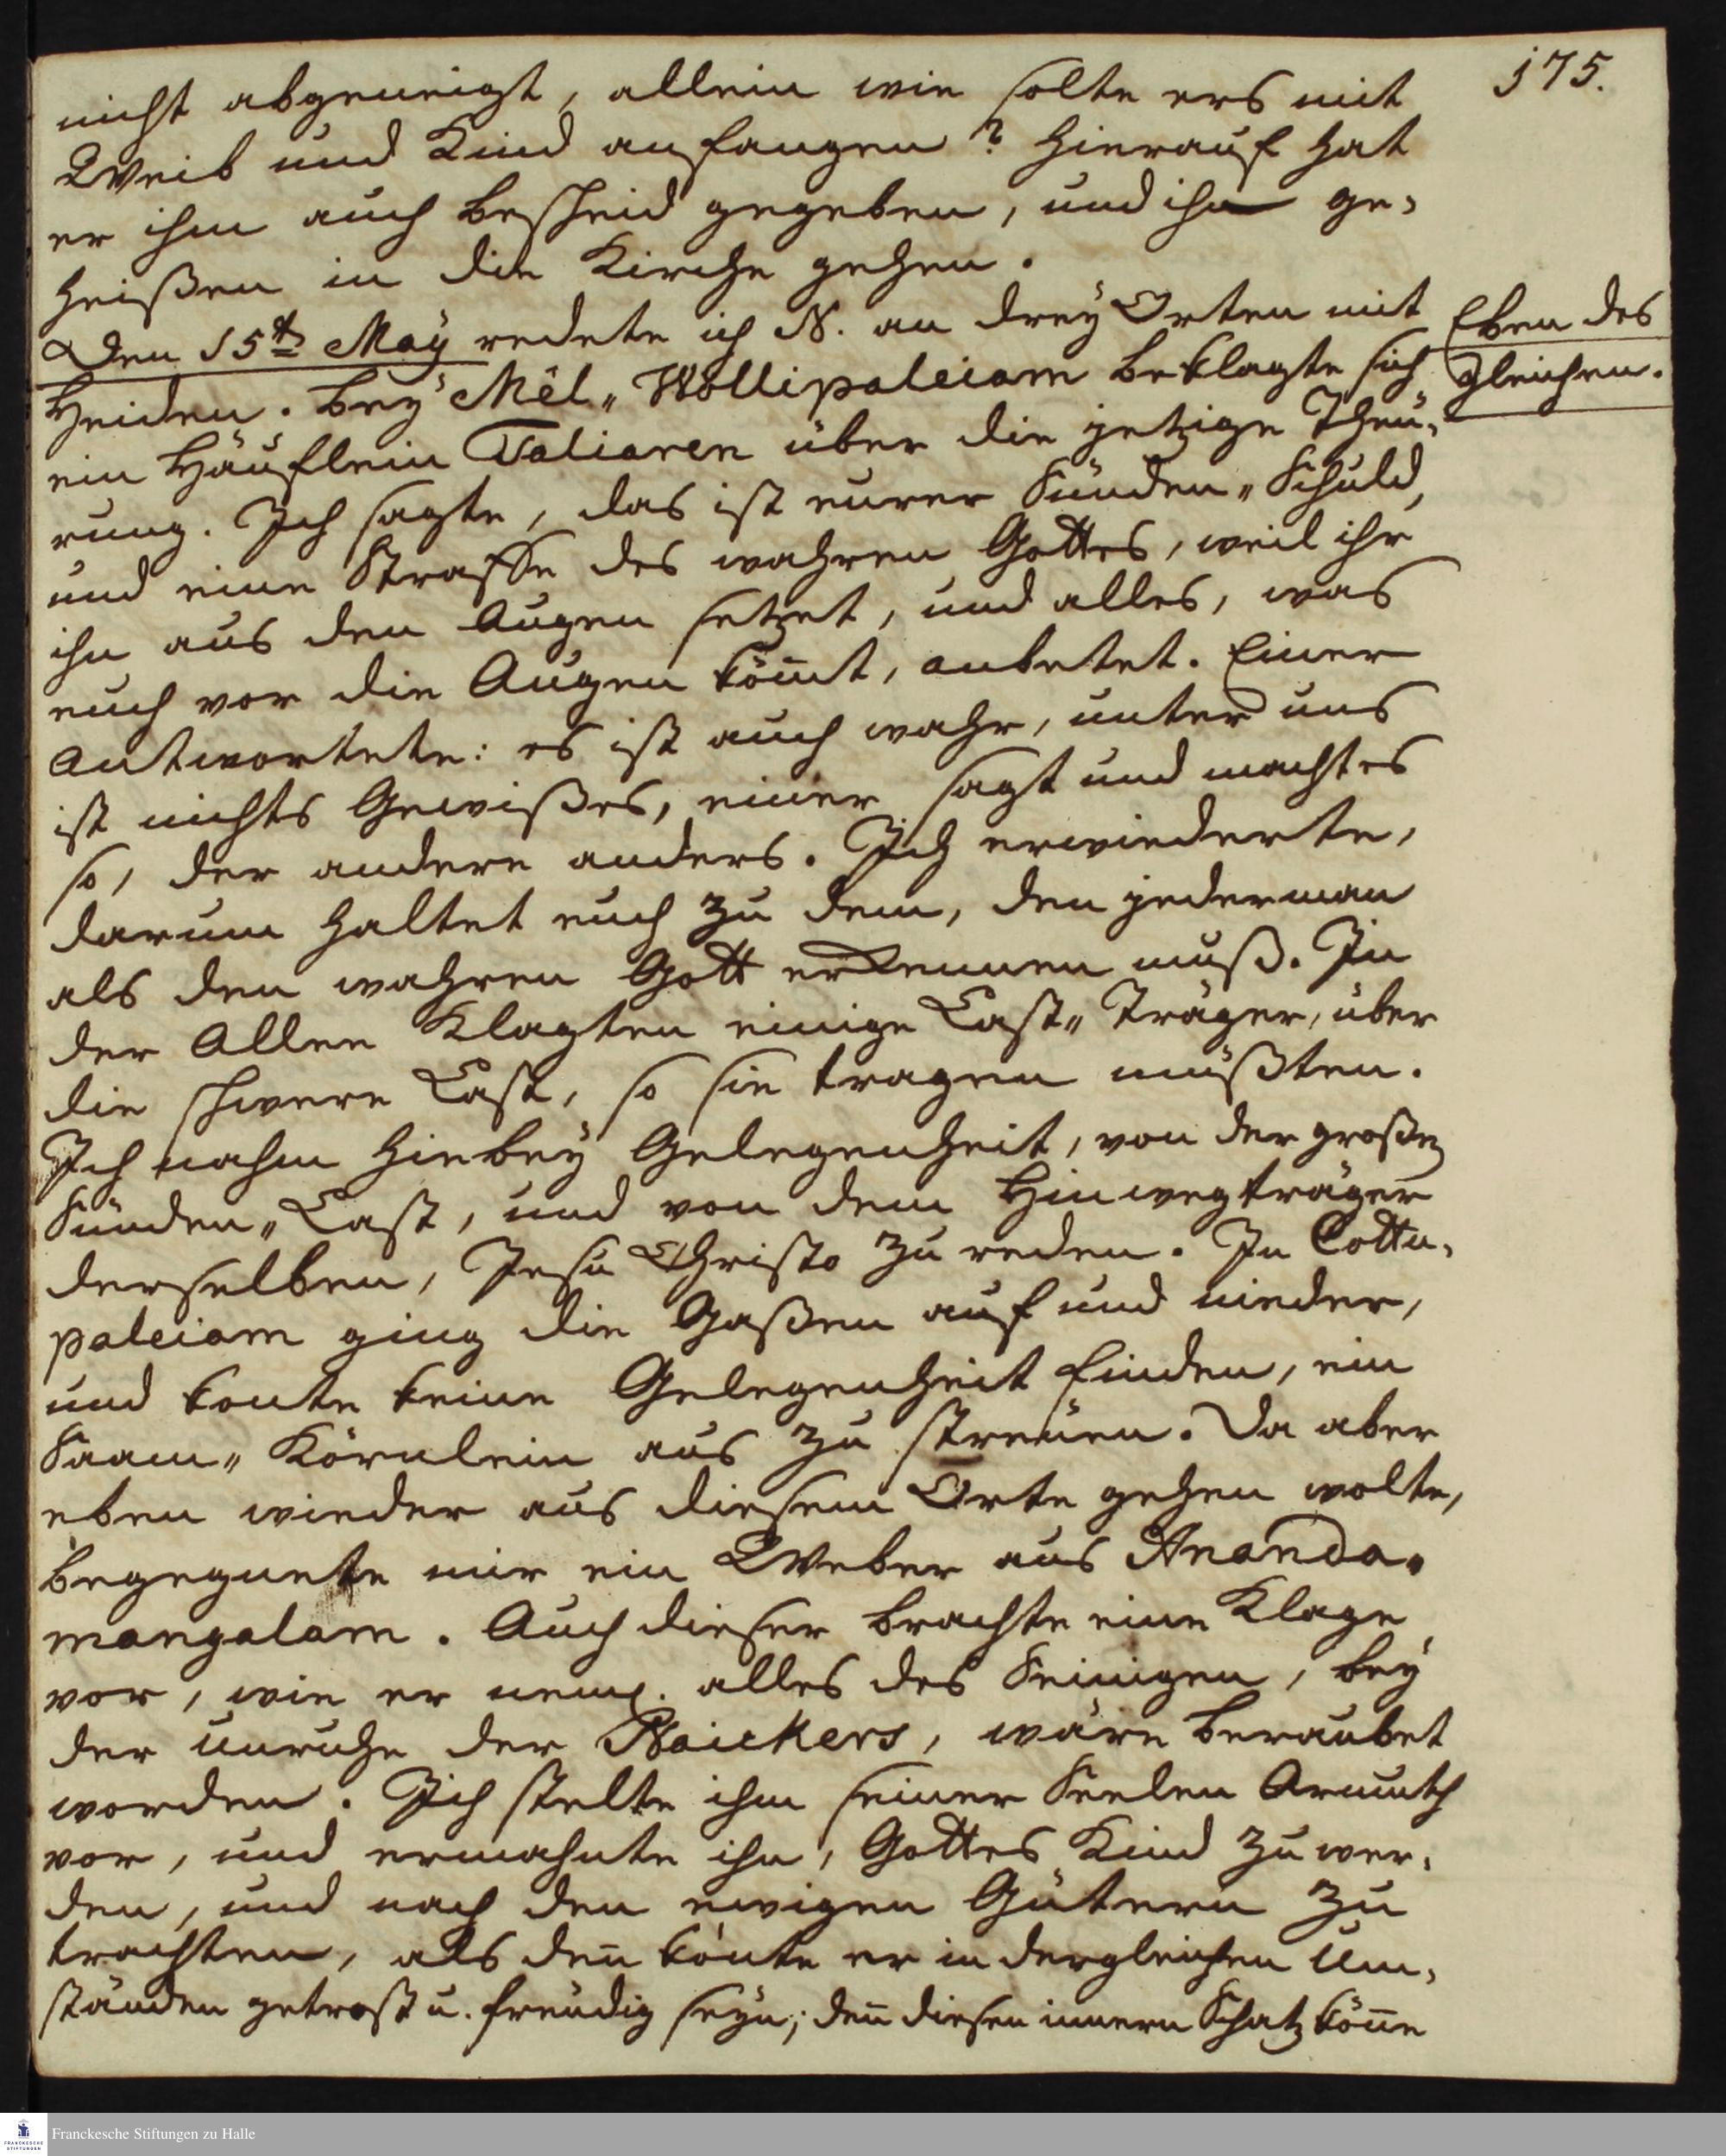 175.
nicht abgeneigt, allein wie solte ers mit
Weib und Kind anfangen? Hierauf hat
er ihm auch Bescheid gegeben, und ihn ge-
heißen in die Kirche gehen.
Den 15t. May redete ich N. an drey Orten mit
Heiden. Bey Mêl„Wöllipaleiam beklagte sich
Eben des
gleichen.
ein Häuflein Taliaren über die jetzige Theu-
rung. Ich sagte, das ist eurer Sünden„Schuld,
und eine Straffe des wahren Gottes, weil ihr
ihn aus den Augen setzet, und alles, was
euch vor die Augen köm̄t, anbetet. Einer
antwortete: es ist auch wahr, unter uns
ist nichts Gewißes, einer sagt und macht es
so, der andere anders. Ich erwiederte,
darum haltet euch zu dem, den jederman
als den wahren Gott erkennen muß. In
der Allee klagten einige Last„Träger, über
die schwere Last, so sie tragen müßten.
Ich nahm hiebey Gelegenheit, von der großen
Sünden„Last, und von dem Hinwegträger
derselben, Jesu Christo zu reden. In Cottu-
paleiam ging die Gaßen auf und nieder,
und konte keine Gelegenheit finden, ein
Saam„Körnlein aus zu streuen. Da aber
eben wieder aus diesem Orte gehen wolte,
begegnete mir ein Weber aus Ananda-
mangalam. Auch dieser brachte eine Klage
vor, wie er neml. alles des Seinigen, bey
der Unruhe der Naickers, wäre beraubet
worden. Ich stelte ihm seiner Seelen Armuth
vor, und ermahnte ihn, Gottes Kind zu wer-
den, und nach den ewigen Gütern zu
trachten, als den̄ könte er in dergleichen Um-
ständen getrost u. freudig seyn; den̄ diesen innern Schatz kön̄e
Franckesche Stiftungen zu Halle